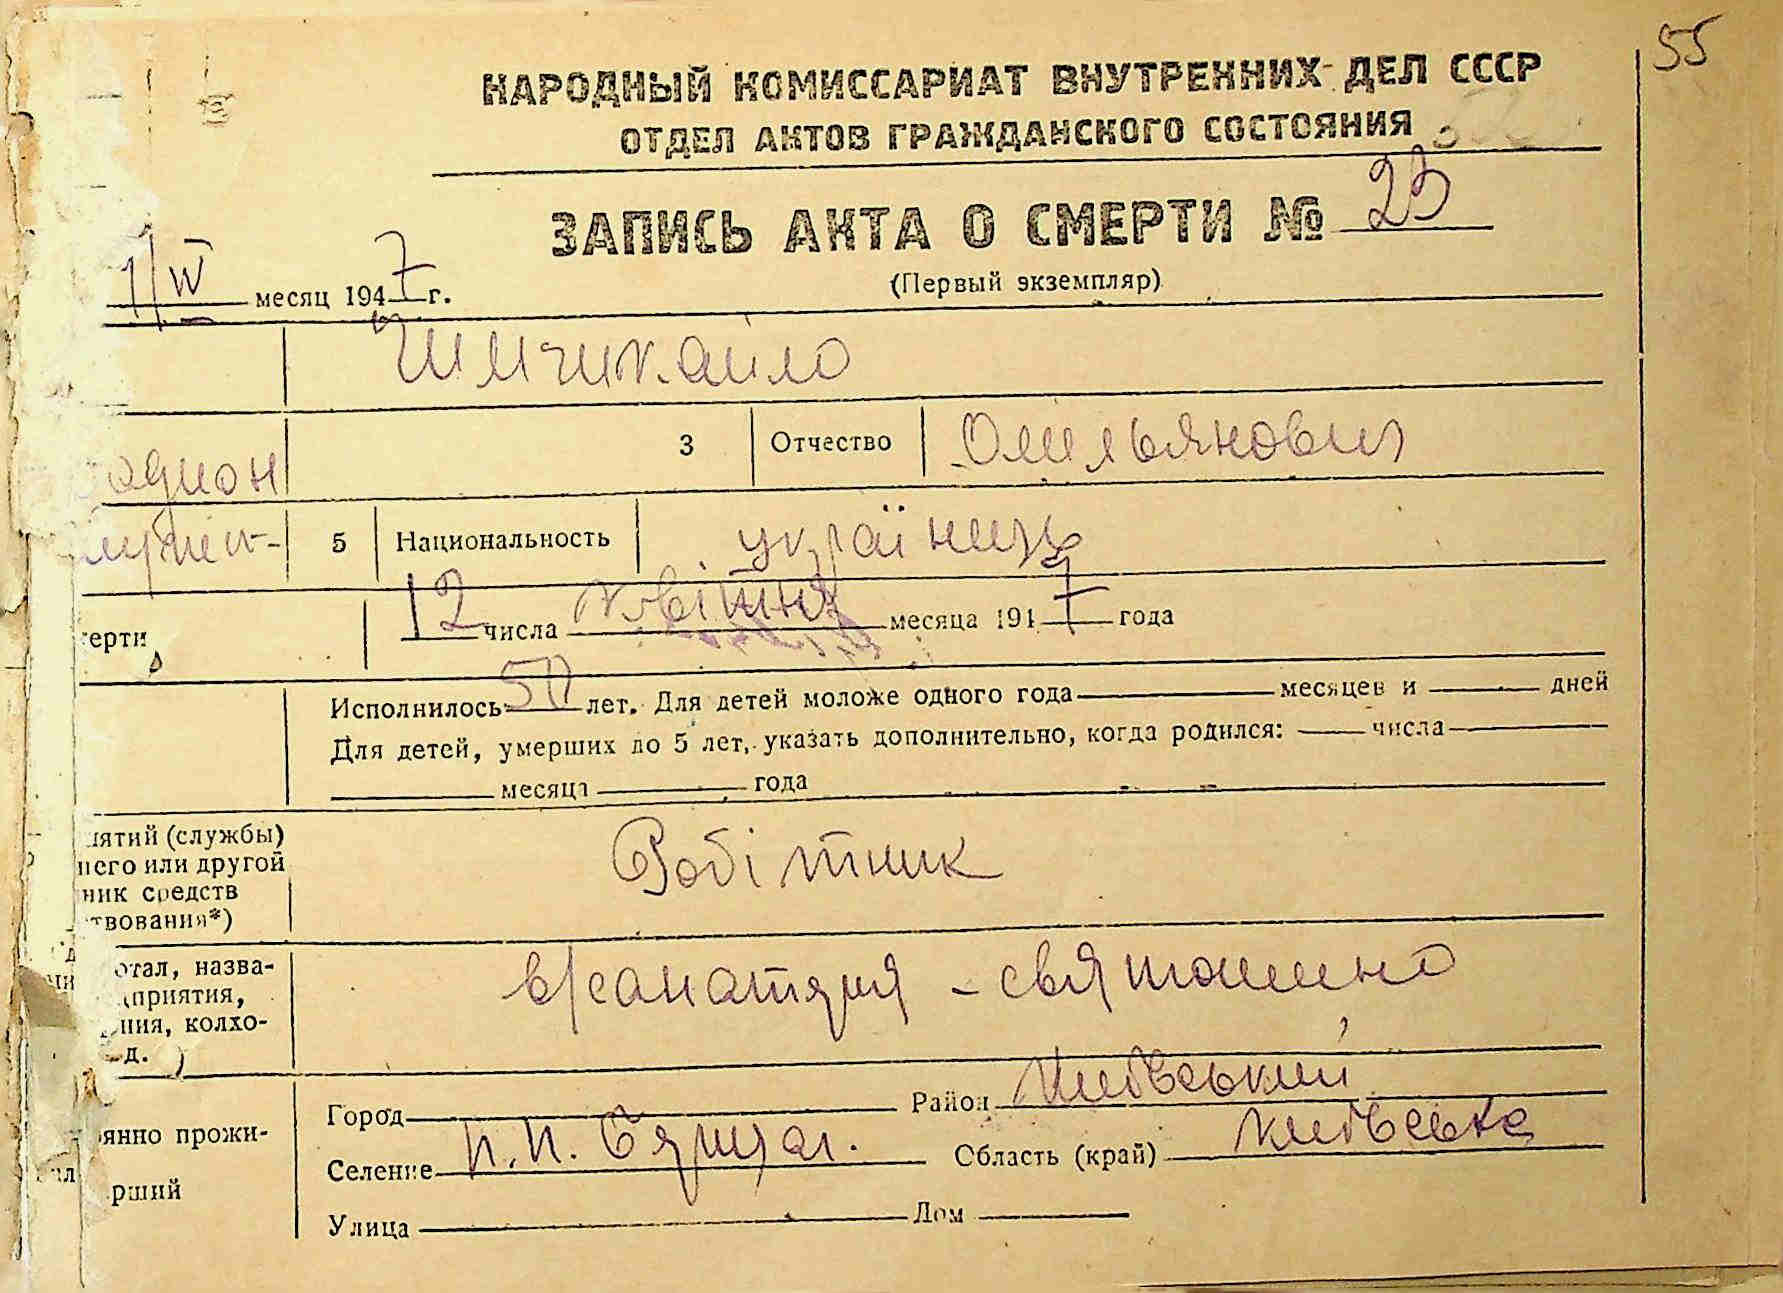 55
НАРОДНЫЙ КОМИССАРИАТ ВНУТРЕННИХ ДЕЛ СССР
ОТДЕЛ АКТОВ ГРАЖДАНСКОГО СОСТОЯНИЯ
ЗАПИСЬ АКТА О СМЕРТИ № 23
(Первый экземпляр)
IV месяц 1947 г.
3 Отчество Омельянович
одион
5 Национальность українець
ерти 12 числа квітня месяца 1947 года
Исполнилось 50 лет. Для детей моложе одного года месяцев и дней
Для детей, умерших до 5 лет, указать дополнительно, когда родился: числа
месяца года
нятий (службы)
него или другой
ник средств
твования*)
Робітник
отал, назва-
приятия,
ния, колхо-
д.)
в/санаторія - святошино
янно прожи-
рший
Город Район Київський
Селение Область (край) київська
Улица Дом